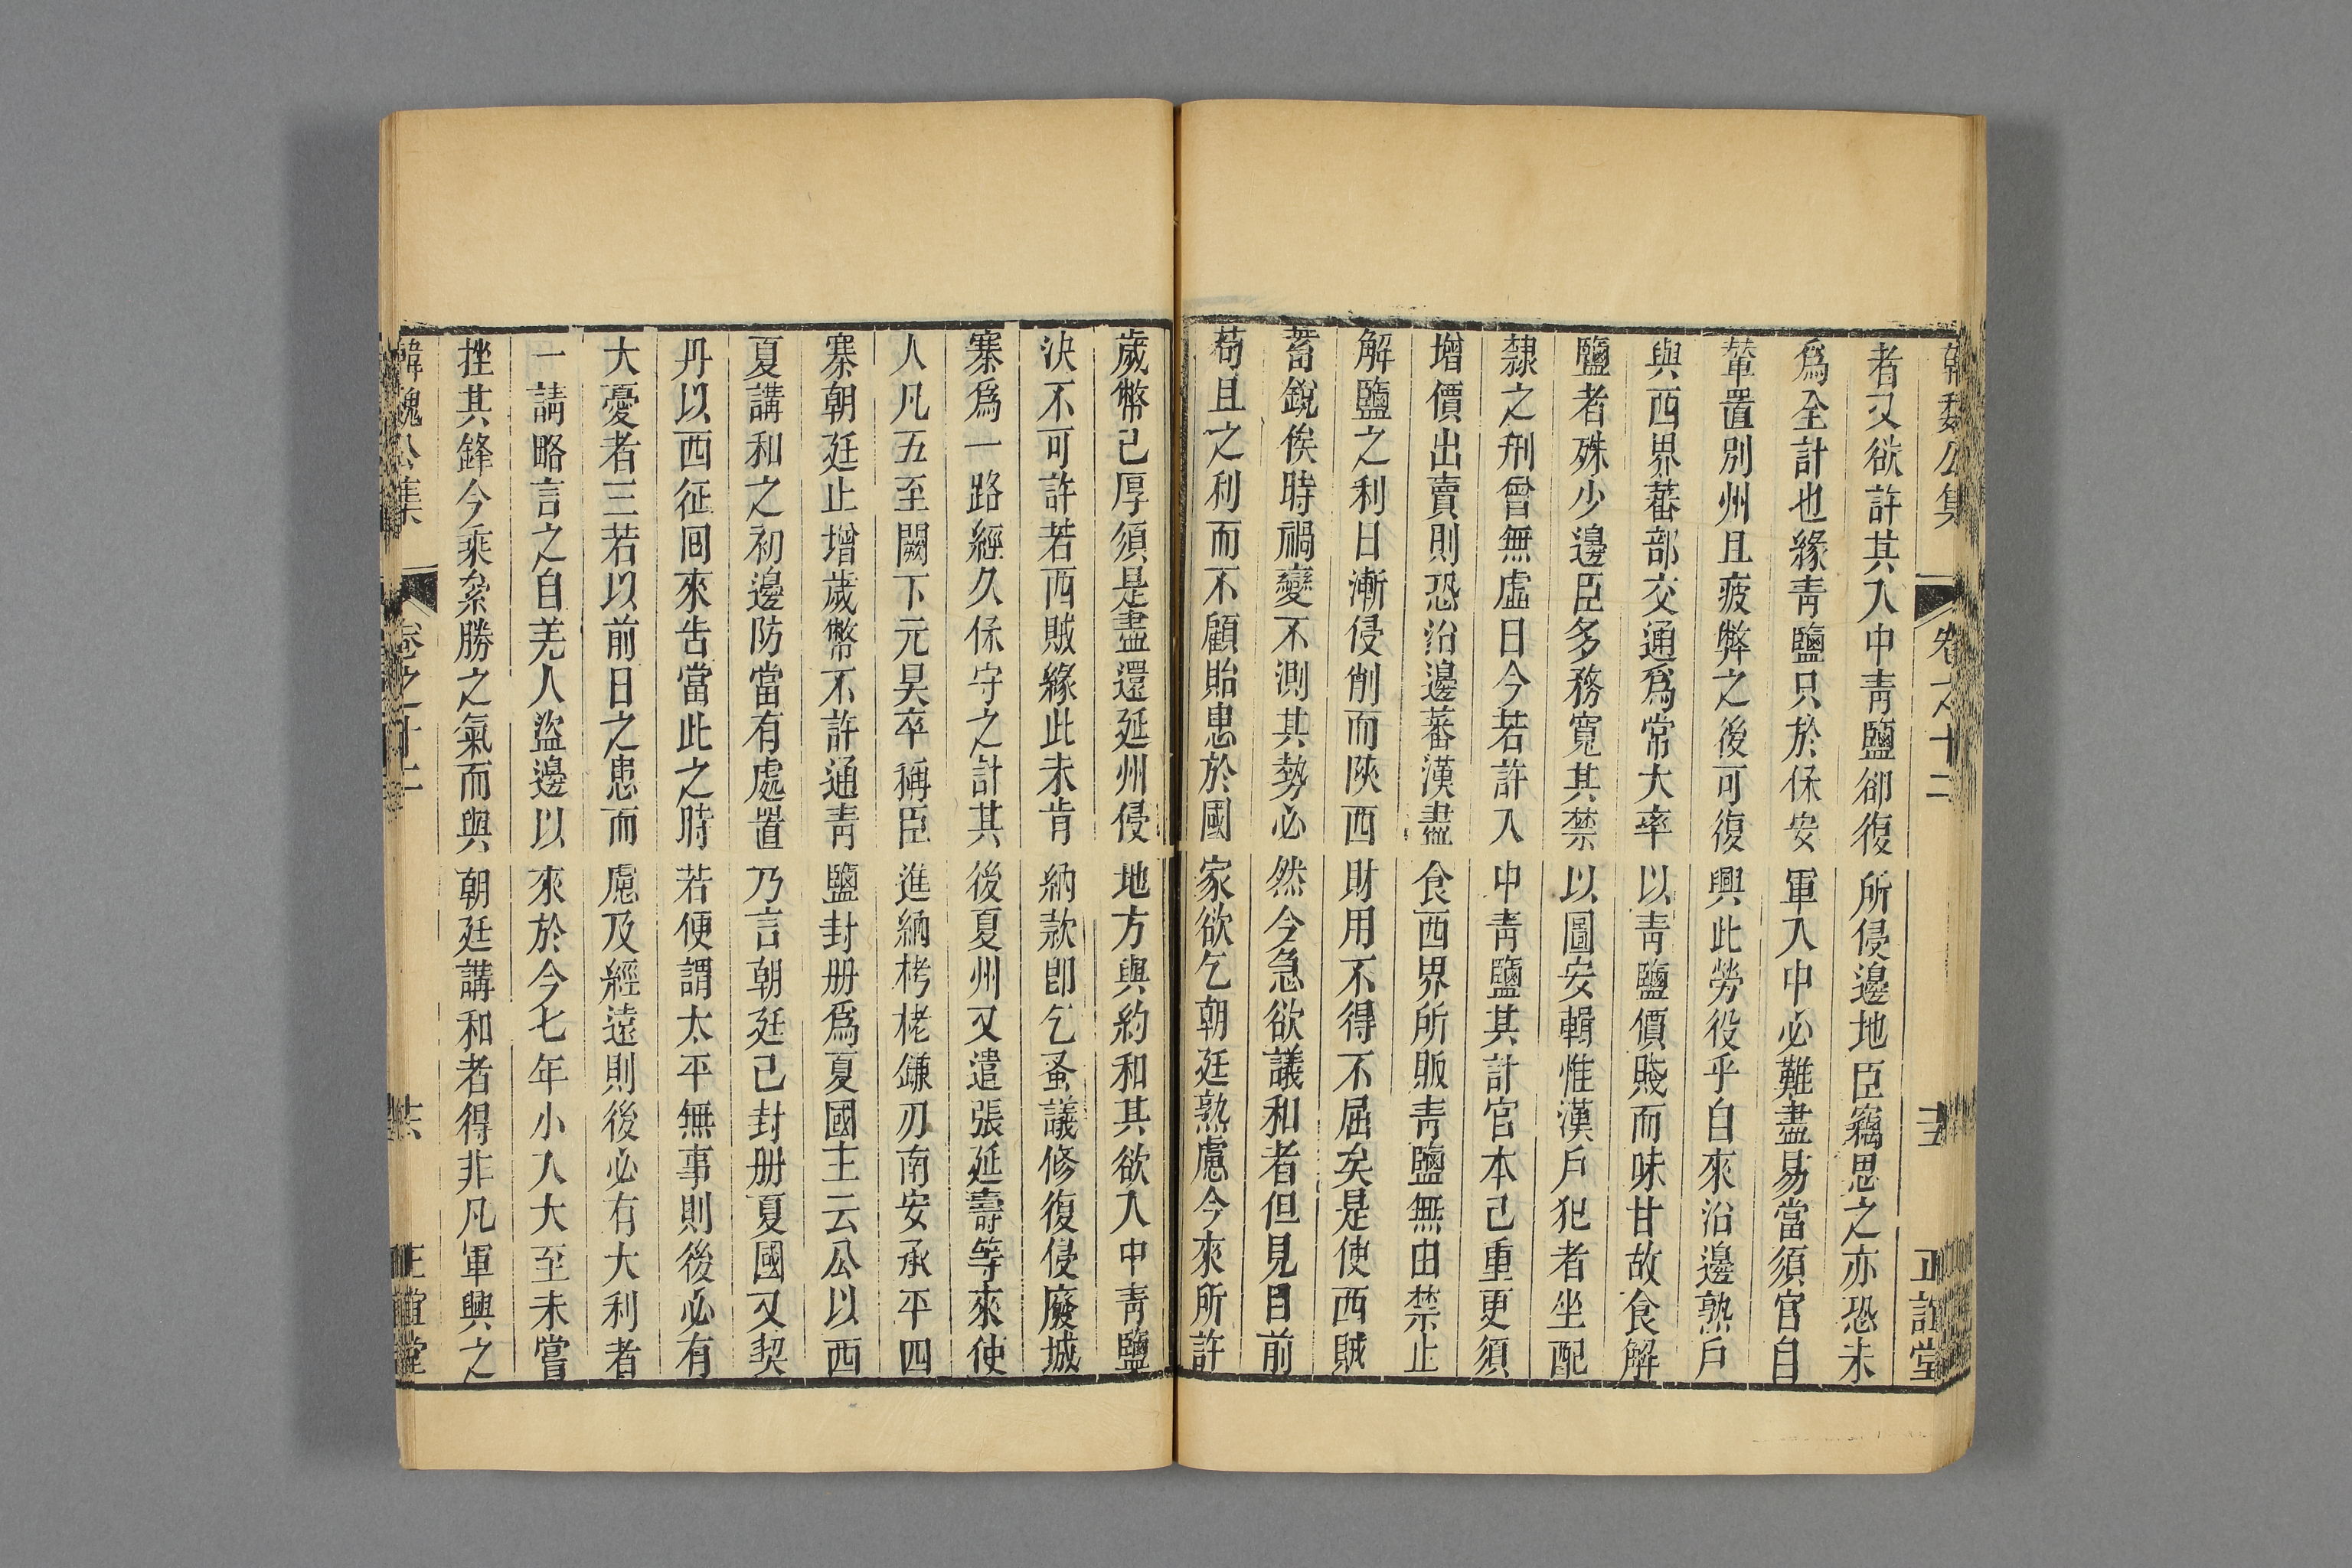 韓魏公集 卷之十二 正誼堂
者又欲許其入中靑鹽卻復所侵邊地臣竊思之亦恐未
爲全計也緣靑鹽只於保安軍入中必難盡易當須官自
輦置別州且疲弊之後可復興此勞役乎自來沿邊熟戶
與西界蕃部交通爲常大率以靑鹽價賤而味甘故食解
鹽者殊少邊臣多務寬其禁以圖安輯惟漢戶犯者坐配
隸之刑曾無虛日今若許入中靑鹽其計官本已重更須
增價出賣則恐沿邊蕃漢盡食西界所販靑鹽無由禁止
解鹽之利日漸侵削而陝西財用不得不屈矣是使西賊
蓄銳俟時禍變不測其勢必然今急欲議和者但見目前
苟且之利而不顧貽患於國家欲乞朝廷熟慮今來所許
歲幣已厚須是盡還延州侵地方與約和其欲入中靑鹽
決不可許若西賊緣此未肯納款卽乞蚤議修復侵廢城
寨爲一路經久保守之計其後夏州又遣張延壽等來使
人凡五至闕下元昊卒稱臣進納栲栳鐮刃南安承平四
寨朝廷止增歲幣不許通靑鹽封册爲夏國主云公以西
夏講和之初邊防當有處置乃言朝廷已封册夏國又契
丹以西征囘來告當此之時若便謂太平無事則後必有
大憂者三若以前日之患而慮及經遠則後必有大利者
一請略言之自羌人盜邊以來於今七年小入大至未嘗
挫其鋒今乘累勝之氣而與朝廷講和者得非凡軍興之
韓魏公集 卷之十二 正誼堂